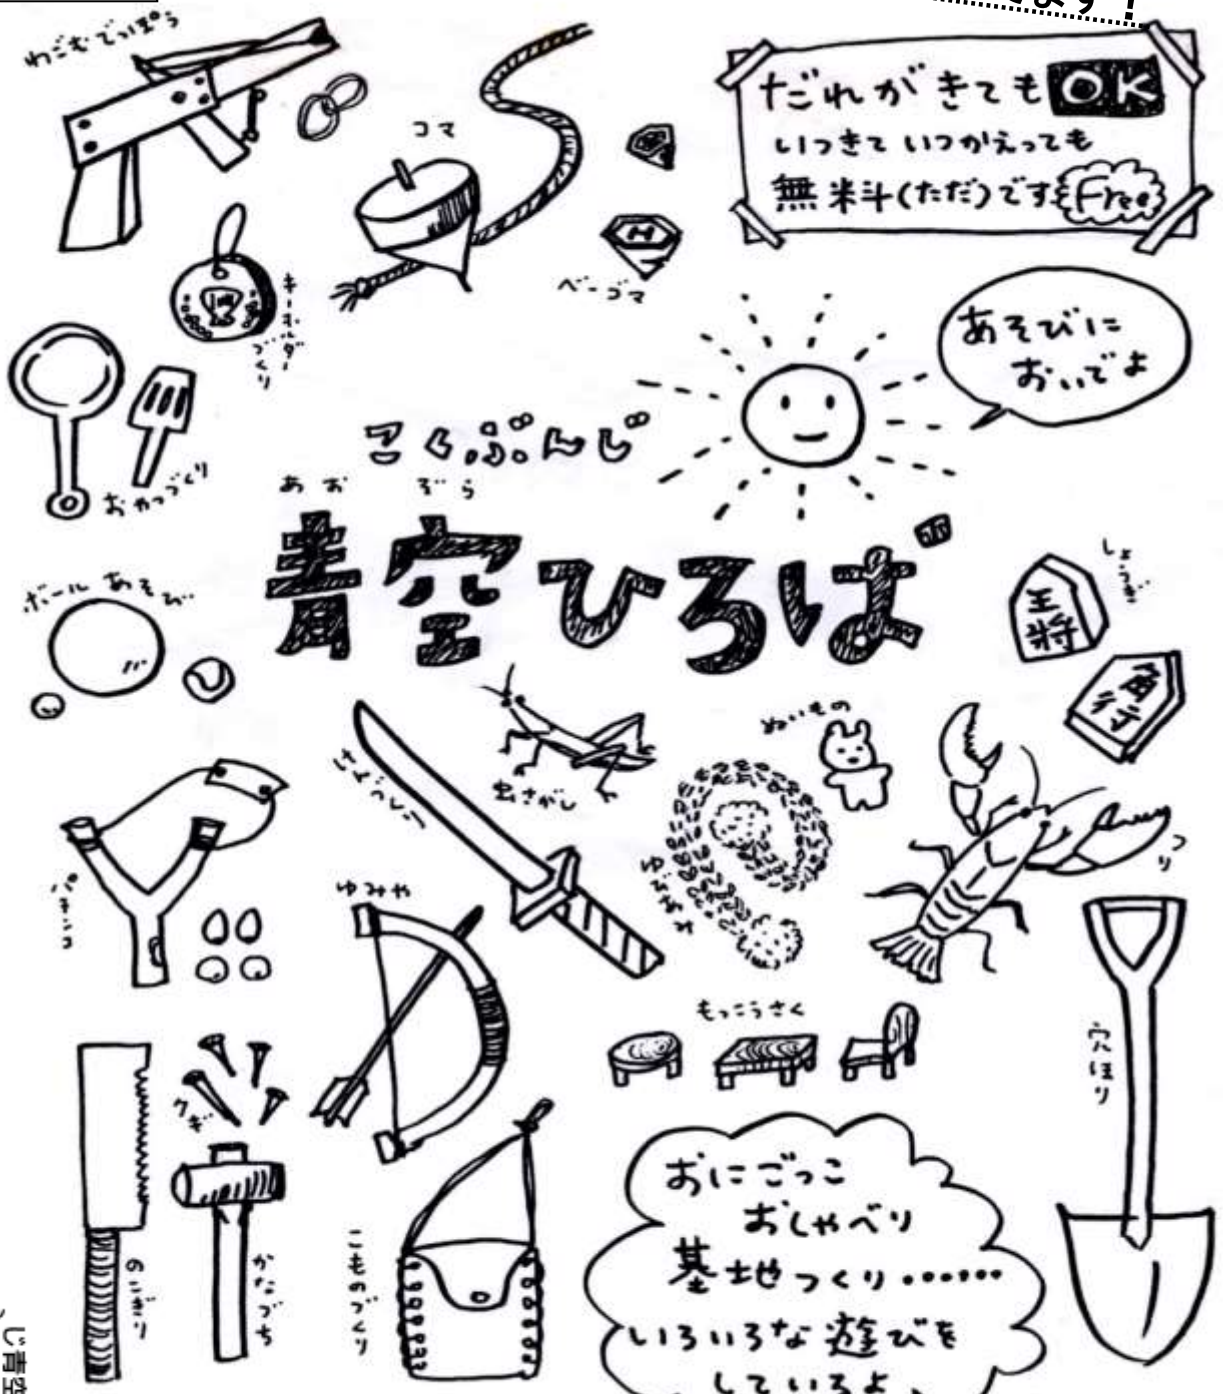 ます！
わごむでっぽう
コマ
ベーゴマ
だれがきてもOK
いつきていつかえっても
無料(ただ)です Free
キーホルダー
づくり
あそびに
おいでよ
おやつづくり
こくぶんじ
あおぞら
青空ひろば
ボールあそび
しょうぎ
王将
角行
ぬいもの
虫さがし
ゆびあみ
つり
パチンコ
ゆみや
もっこうさく
穴ほり
クギ
のこぎり
かなづち
こものづくり
おにごっこ
おしゃべり
基地つくり……
いろいろな遊びを
しているよ、
じ青空